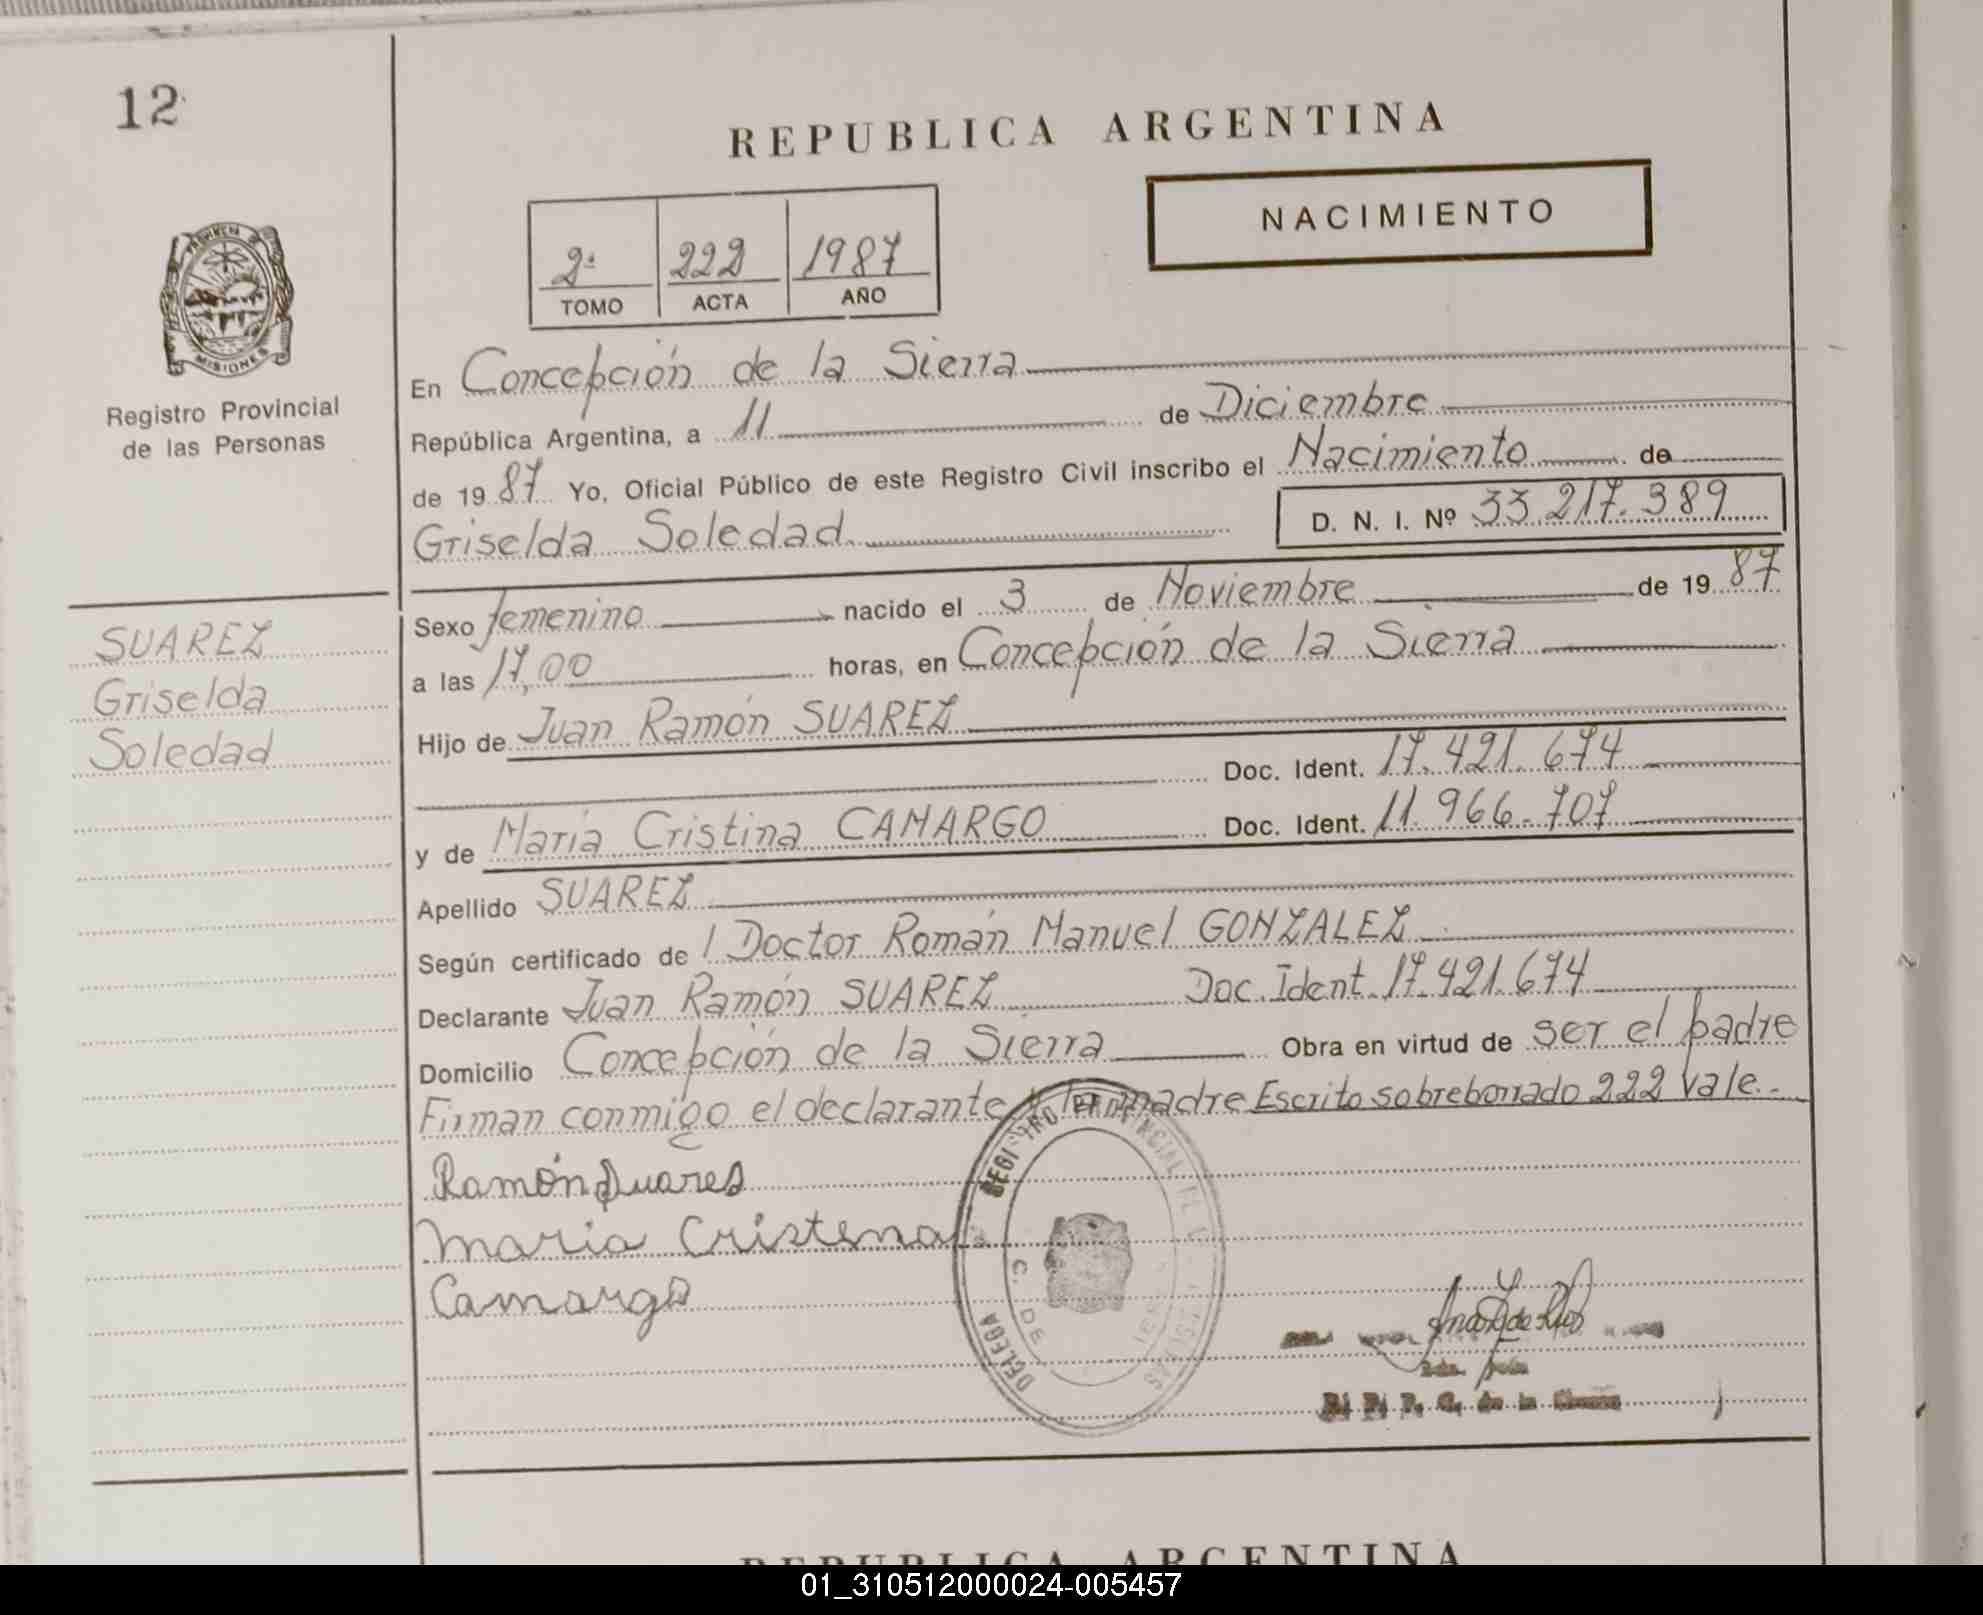 12
REPUBLICA ARGENTINA
NACIMIENTO
2ª 222 1987
TOMO ACTA AÑO
PROVINCIA DE MISIONES
Registro Provincial
de las Personas
En Concepción de la Sierra
República Argentina, a 11 de Diciembre
de 1987 Yo, Oficial Público de este Registro Civil inscribo el Nacimiento de
Griselda Soledad D. N. I. Nº 33.217.389
Sexo femenino nacido el 3 de Noviembre de 1987
a las 17,00 horas, en Concepción de la Sierra
Hijo de Juan Ramón SUAREZ
Doc. Ident. 17.421.674
y de María Cristina CAMARGO Doc. Ident. 11.966.707
Apellido SUAREZ
Según certificado de l Doctor Román Manuel GONZALEZ
Declarante Juan Ramón SUAREZ Doc. Ident. 17.421.674
Domicilio Concepción de la Sierra Obra en virtud de ser el padre
Firman conmigo el declarante y la madre Escrito sobreborrado 222 Vale.-
Ramón Suares
maria Cristena
Camargo
SUAREZ
Griselda
Soledad
REGISTRO PROVINCIAL DE
DELEGA
C. DE
R. P. P. C. de la Sierra
REPUBLICA ARGENTINA
01_310512000024-005457